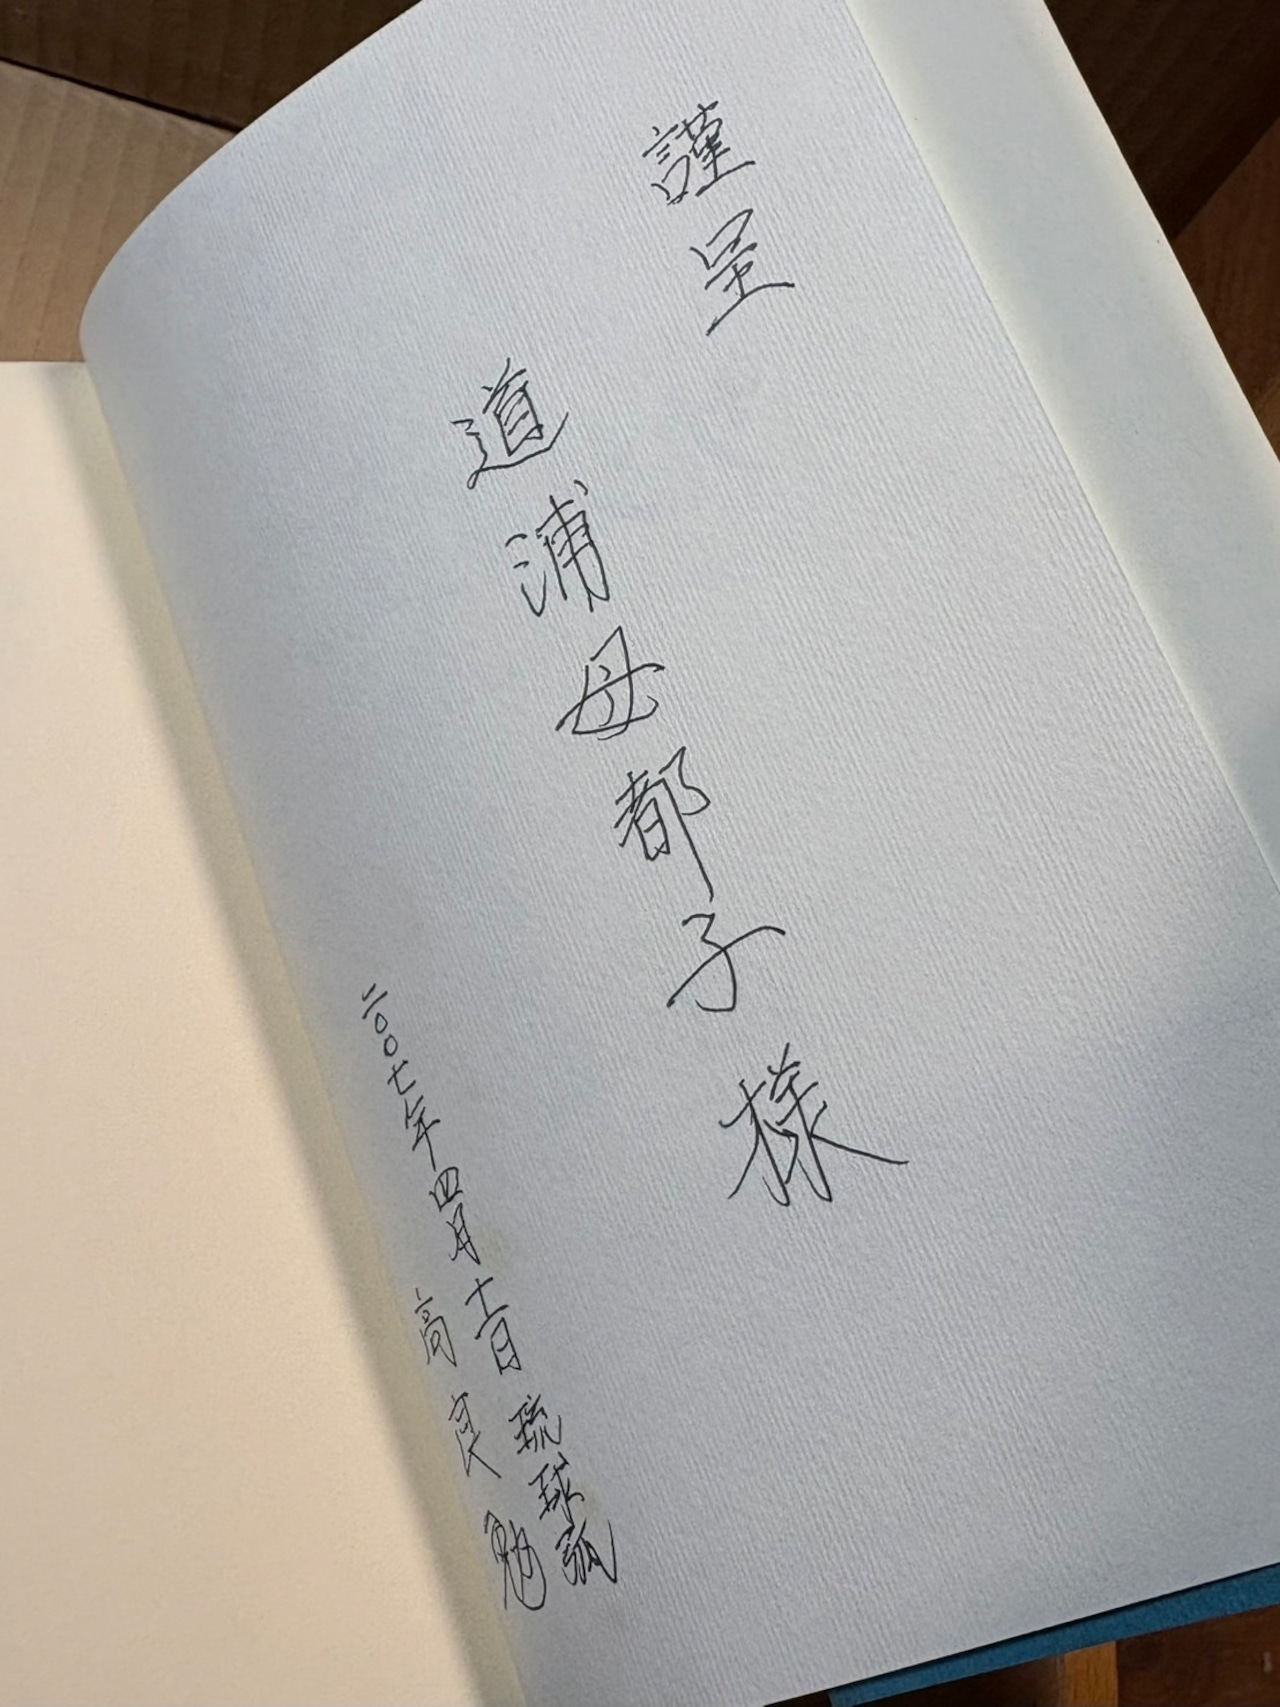 謹呈
道浦母都子様
二〇〇七年四月 琉球弧
高良勉